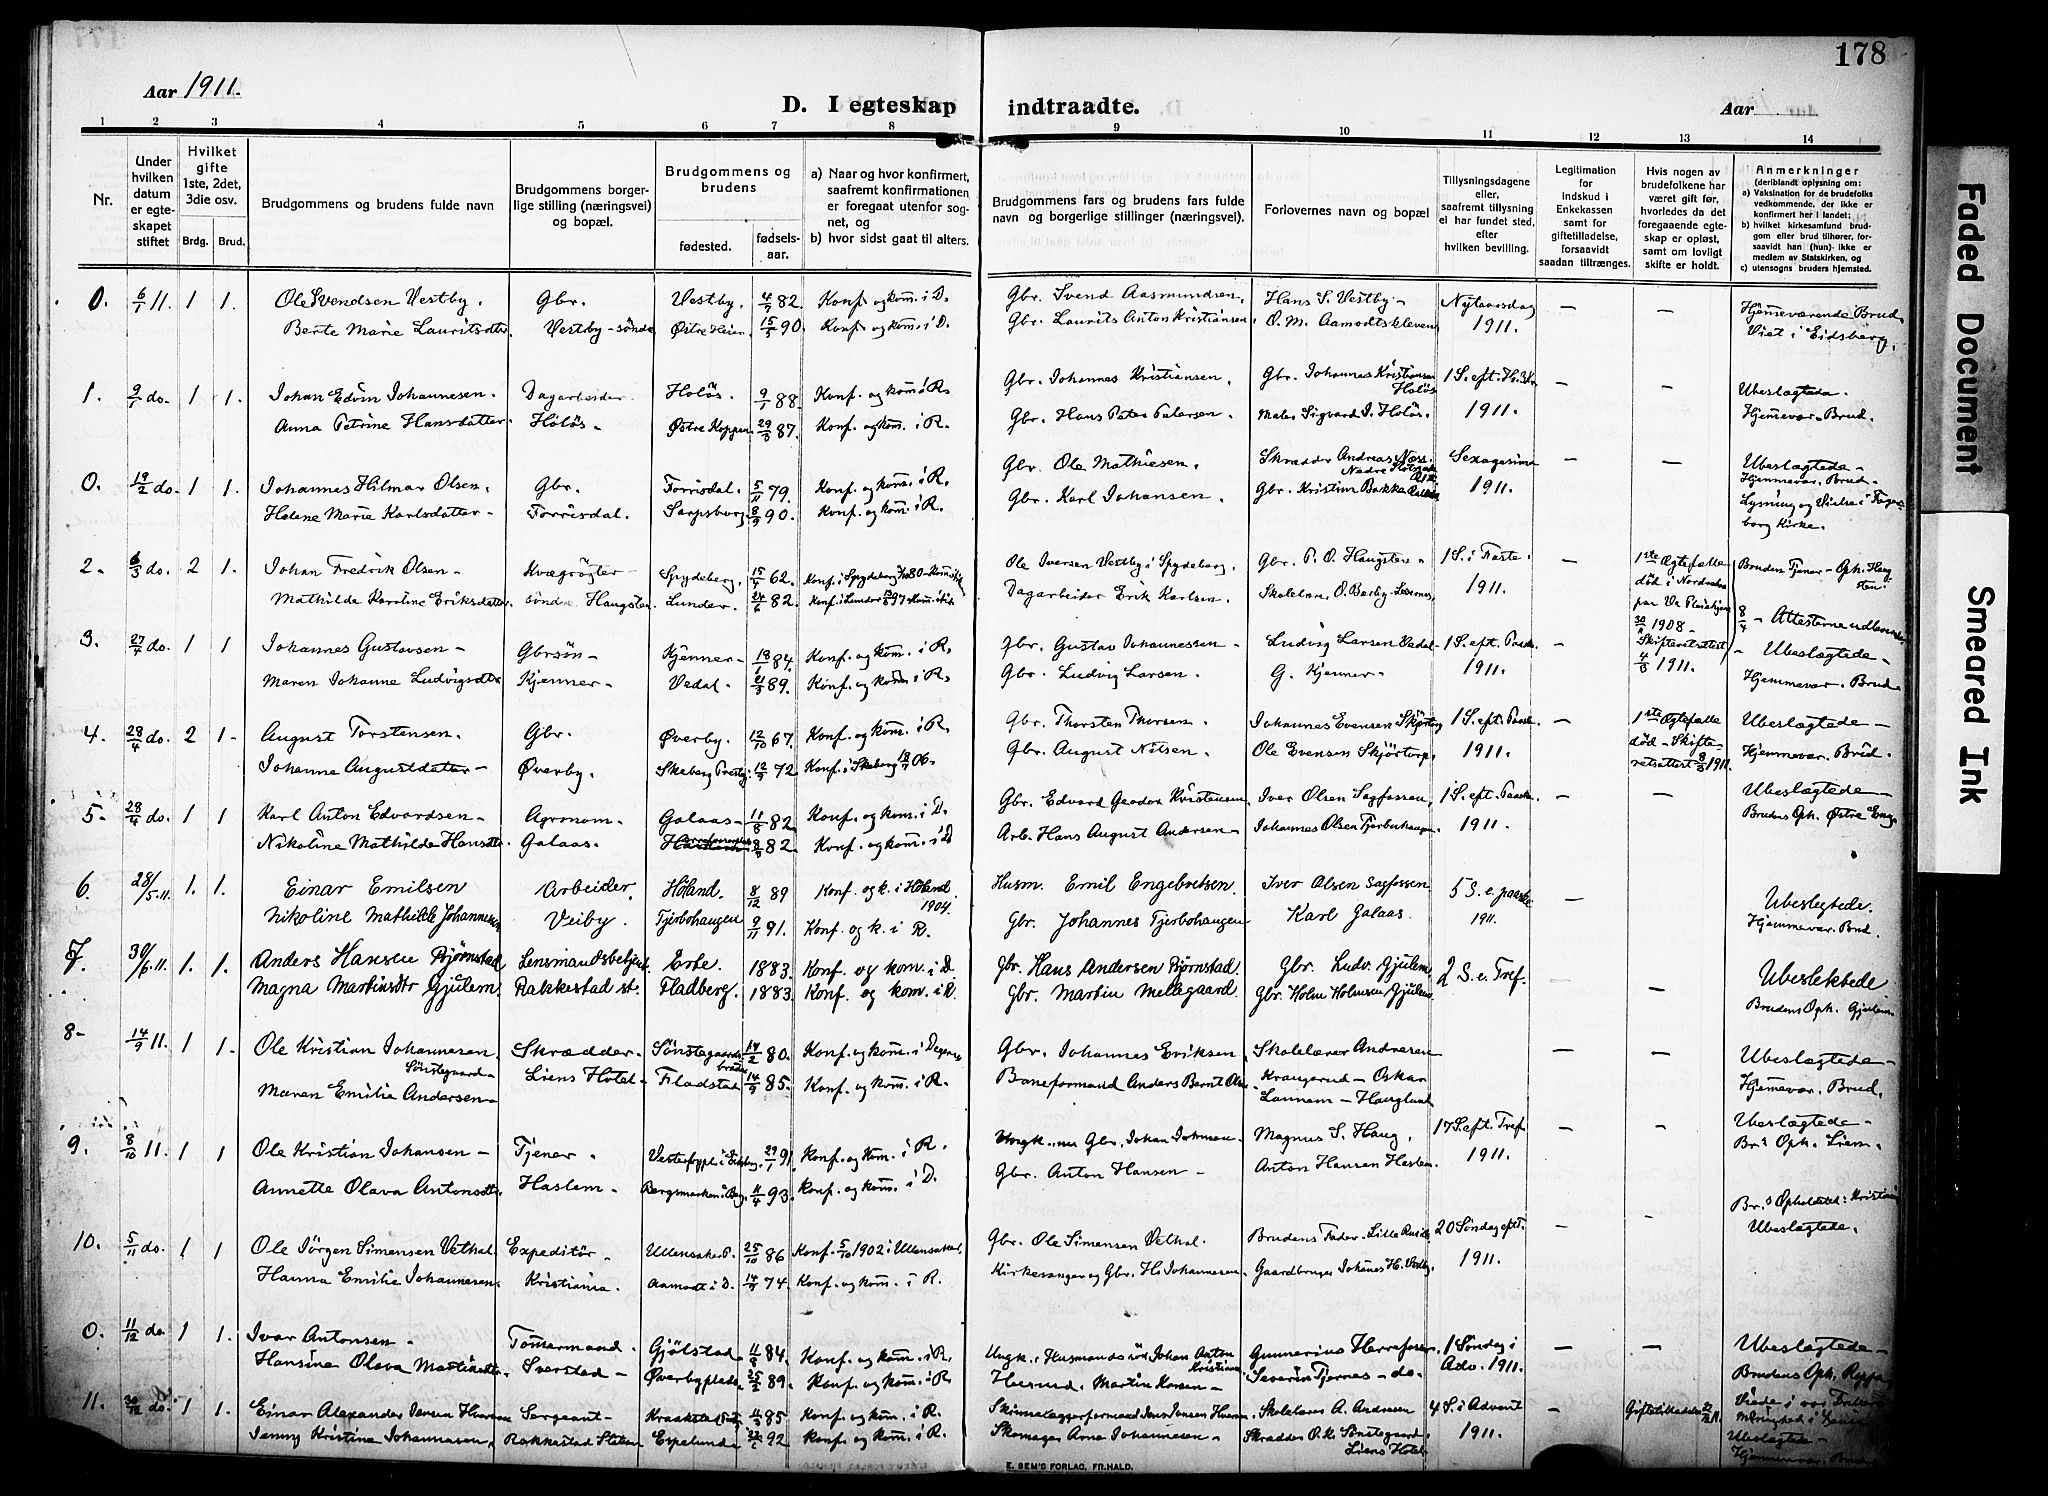 178
Aar 1911.
D. I egteskap indtraadte.
Aar
1 2 3 4 5 6 7 8 9 10 11 12 13 14
Nr.
Under hvilken datum er egteskapet stiftet
Hvilket gifte 1ste, 2det, 3die osv.
Brdg. Brud.
Brudgommens og brudens fulde navn
Brudgommens borgerlige stilling (næringsvei) og bopæl.
Brudgommens og brudens
fødested. fødselsaar.
a) Naar og hvor konfirmert, saafremt konfirmationen er foregaat utenfor sognet, og
b) hvor sidst gaat til alters.
Brudgommens fars og brudens fars fulde navn og borgerlige stillinger (næringsvei).
Forlovernes navn og bopæl
Tillysningsdagene eller, saafremt tillysning ei har fundet sted, efter hvilken bevilling.
Legitimation for indskud i Enkekassen samt for giftetilladelse, forsaavidt saadan tiltrænges.
Hvis nogen av brudefolkene har været gift før, hvorledes da det foregaaende egteskap er opløst, samt om lovligt skifte er holdt.
Anmerkninger
(deriblandt oplysning om:
a) Vaksination for de brudefolks vedkommende, der ikke er konfirmert her i landet;
b) hvilket kirkesamfund brudgom eller brud tilhører, forsaavidt han (hun) ikke er medlem av Statskirken, og
c) utensogns bruders hjemsted.
0. 6/1 11. 1 1. Ole Svendsen Vestby. Gbr. Vestby. 4/7 82. Konf. og kom. i D. Gbr. Svend Aasmundsen. Hans S. Vestby - Nytaarsdag - - Hjemmeværende Brud.
Berte Marie Lauritsdtr. Vestby-søndre Østre Heier. 15/5 90. Konf. og kom. i D. Gbr. Laurits Anton Kristiansen. O. M. Aamodtskleven 1911. Viet i Eidsberg.
1. 9/1 do. 1 1. Johan Edvin Johannesen. Dagarbeider. Holøs. 9/1 88. Konf. og kom. i R. Gbr. Johannes Kristiansen. Gbr. Johannes Kristiansen Holøs 1 S. eft. H.3.K. - - Ubeslægtede.
Anna Petrine Hansdatter. Holøs. Østre Koppen. 29/8 87. Konf. og kom. i R. Gbr. Hans Peter Petersen. Maler Sigvard J. Holøs. 1911. Hjemmevær. Brud.
0. 19/2 do. 1 1. Johannes Hilmar Olsen. Gbr. Torrisdal. 5/11 79. Konf. og kom. i R. Gbr. Ole Mathiesen. Skrædder Andreas Næss. Sexagesima - - Ubeslægtede - Hjemmevær. Brud -
Helene Marie Karlsdatter. Torrisdal. Sarpsborg. 8/9 90. Konf. og kom. i R. Gbr. Karl Johansen. Gbr. Kristian Bakke 1911. Lysning og Vielse i borg Kirke.
2. 6/3 do. 2 1. Johan Fredrik Olsen - Kvægrøgter - Spydeberg. 15/4 62. Konf. i Spydeberg Ole Iversen Vestby i Spydeberg. Gbr. P. O. Haugsten - 1 S. i Faste. - 1ste Ægtefælle død i Bruden Tjener - Oph. Haugsten.
Mathilde Karoline Eriksdatter. søndre Haugsten. Lunder. 24/6 82. Konf. i Lunder Dagarbeider Erik Karlsen. Skolelær. O. Barby 1911. 30/11 1908 - Skifteretsattest 4/3 1911. 8/4 - Attesterne udleveret
3. 27/4 do. 1 1 Johannes Gustavsen - Gbrsøn - Kjenner - 13/1 84. Konf. og kom. i R. Gbr. Gustav Johannessen - Ludvig Larsen Vedal - 1 S. eft. Paaske. - - Ubeslægtede -
Maren Johanne Ludvigsdtr. Kjenner - Vedal. 21/3 89. Konf. og kom. i R. Gbr. Ludvig Larsen. G. Kjenner - 1911. Hjemmevær. Brud.
4. 28/4 do. 2 1 - August Torstensen. Gbr. Øverby. 12/10 67. Konf. og kom. i R. Gbr. Thorsten Thorsen. Johannes Evensen Skjørtorp 1 S. eft. Paaske. - 1ste Ægtefælle Ubeslægtede -
Johanne Augustdatter - Øverby. Skeberg Prestg. 12/3 72 Konf. i Skeberg 06. Gbr. August Nilsen. Ole Evensen Skjørtorp. 1911. død - Skifteretsattest 8/3 1911. Hjemmevær. Brud.
5. 28/4 do. 1 1 Karl Anton Edvardsen - Agronom - Galaas - 11/8 82. Konf. og kom. i D. Gbr. Edvard Geodor Kristensen. Iver Olsen Sagfossen, 1 S. eft. Paaske. - - Ubeslægtede -
Nikoline Mathilde Hansdtr. Galaas. 82 Konf. og kom. i D Arb. Hans August Andersen - Johannes Olsen Tjerbuhaugen. 1911. Brudens Oph. Østre Eng.
6. 28/5.11. 1. 1. Einar Emilsen Arbeider, Høland. 8/12 89 Konf. og k. i Høland 1904. Husm. Emil Engebretsen. Iver Olsen Sagfossen 5 S. e. paaske - Ubeslægtede.
Nikoline Mathilde Johannesen Veiby. Tjerbohaugen 9/11 91. Konf. og k. i R. Gbr. Johannes Tjerbohaugen Karl Galaas. 1911. Hjemmevær. Brud.
7. 30/6.11. 1. 1. Anders Hansen Bjørnstad Lensmandsbetjent Erte. 1883. Konf. og kom. i D. Gbr. Hans Andersen Bjørnstad. Gbr. Ludv. Gjulem. 2 S. e. Tref. - Ubeslektede
Magna Martinsdtr Gjulem. Rakkestad st. Fladberg. 1883. Konf. og kom. i R. Gbr. Martin Mellegaard. Gbr. Holm Holmsen Gjulem. Brudens Oph. Gjulem
8 - 14/9 11. 1 1. Ole Kristian Johannesen Sønstegaard - Skrædder. Sønstegaards 14/2 80. Konf. og kom. i Degernes Gbr. Johannes Eriksen. Skolelærer Andresen - - Ubeslægtede -
Maren Emilie Andersen - Liens Hotel - Fladstad 14/9 85. Konf. og kom. i R. Baneformand Anders Bernt Olsen. Krangerud - Oskar Lannem - Haugland Hjemmevær. Brud.
9. 8/10 11. 1 1 Ole Kristian Johansen - Tjener. Vesterbypl. i Eidsberg. 29/1 91. Konf. og kom. i R. Ungk. nu Gbr. Johan Johansen. Magnus S. Haug. 17 S. eft. Tref. - - Ubeslægtede -
Annette Olava Antonsdtr. Haslem - Bergsmarken i Berg. 11/4 93. Konf. og kom. i D. Gbr. Anton Hansen - Anton Hansen Haslem. 1911. Br.s Oph. Liem -
10. 5/11 do. 1 1 Ole Jørgen Simensen Vethal Expeditør - Ullensaker P. 25/10 86 Konf. 5/10 1902 i Ullensaker. Gbr. Ole Simensen Vethal. Brudens Fader. 20 Søndag eft. T. - - Br.s Opholdsted: Kristiania
Hanna Emilie Johannesen Kristiania. Aamodt i D. 14/9 74. Konf. og kom. i R. Kirkesanger og Gbr. H. Johannesen. Gaardbruger Johanes H. Vestby. 1911. Ubeslægtede.
0. 11/12 do. 1 1. Ivar Antonsen - Tømmermand. Gjølstad 11/8 84. Konf. og kom. i R. Ungk. Husmandssøn Johan Anton Kristiansen Gunnerius Herrefosser 1 Søndag i - - Ubeslægtede -
Hansine Olava Martinsdtr. Sverstad - Øverbyplads. 25/2 89. Konf. og kom. i R. Husmd. Martin Hansen - Severin Tjernes - do. Adv. 1911. Brudens Oph.
11. do. 1 1. Einar Alexander Jensen Sergeant - Kraakstad 11/3 85 Konf. og kom. i R. Skinnelæggerformand Jens Jensen Skolelærer A. Andresen 4 S. i Advent - Giftetilladelse Viede i
Jenny Kristine Johannesen. Rakkestad Station Espelund 92 Konf. og kom. i R. Skomager Arne Johannesen - Skrædder O. K. Sønstegaard Liens Hotel 1911. Ubeslægtede - Hjemmevær. Brud
E. SEM'S FORLAG, FR.HALD.
Faded Document
Smeared Ink